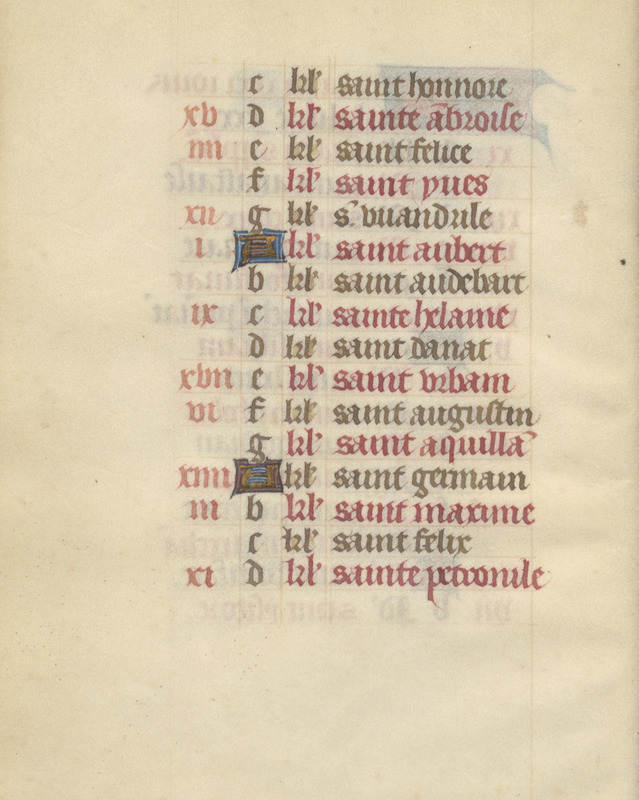 c kl' saint honnore
xv d kl' sainte ābroise
iiii e kl' saint felice
f kl' saint yues
xii g kl' s' vuandrile
i A kl' saint aubert
b kl' saint audebart
ix c kl' sainte helaine
d kl' saint danat
xvii e kl' saint vrbain
vi f kl' saint augustin
g kl' saint aquilla
xiiii A kl' saint germain
iii b kl' saint maxime
c kl' saint felix
xi d kl' sainte petronile